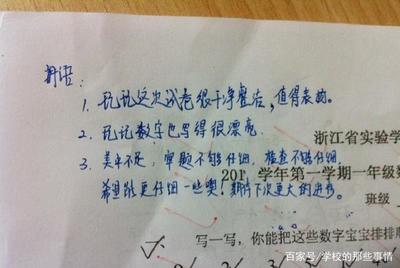 语：
1. 这次试卷很干净整洁，值得表扬。
2. 数字也写得很漂亮.
浙江省实验学
3. 美中不足，审题不够仔细，检查不够仔细.
201 学年第一学期一年级数
希望能更仔细一些噢！期待下次更大的进步。
班级
写一写，你能把这些数字宝宝排排
百家号/学校的那些事情